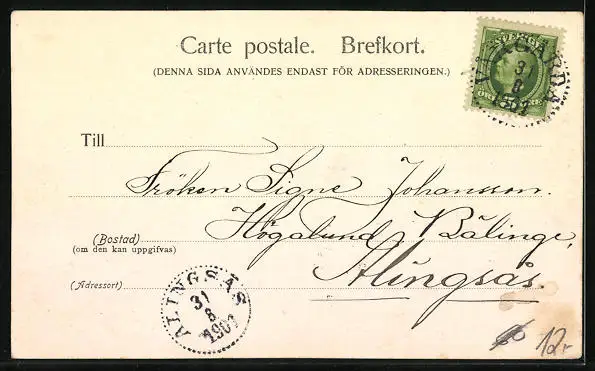 Carte postale. Brefkort.
(DENNA SIDA ANVÄNDES ENDAST FÖR ADRESSERINGEN.)
SVERIGE
5 ÖRE 5
VÅRGÅRDA
31
8
1901
Till
Fröken Signe Johansson.
(Bostad) Högalund Bälinge,
(om den kan uppgifvas)
(Adressort) Alingsås.
ALINGSÅS
31
8
1901
12:-